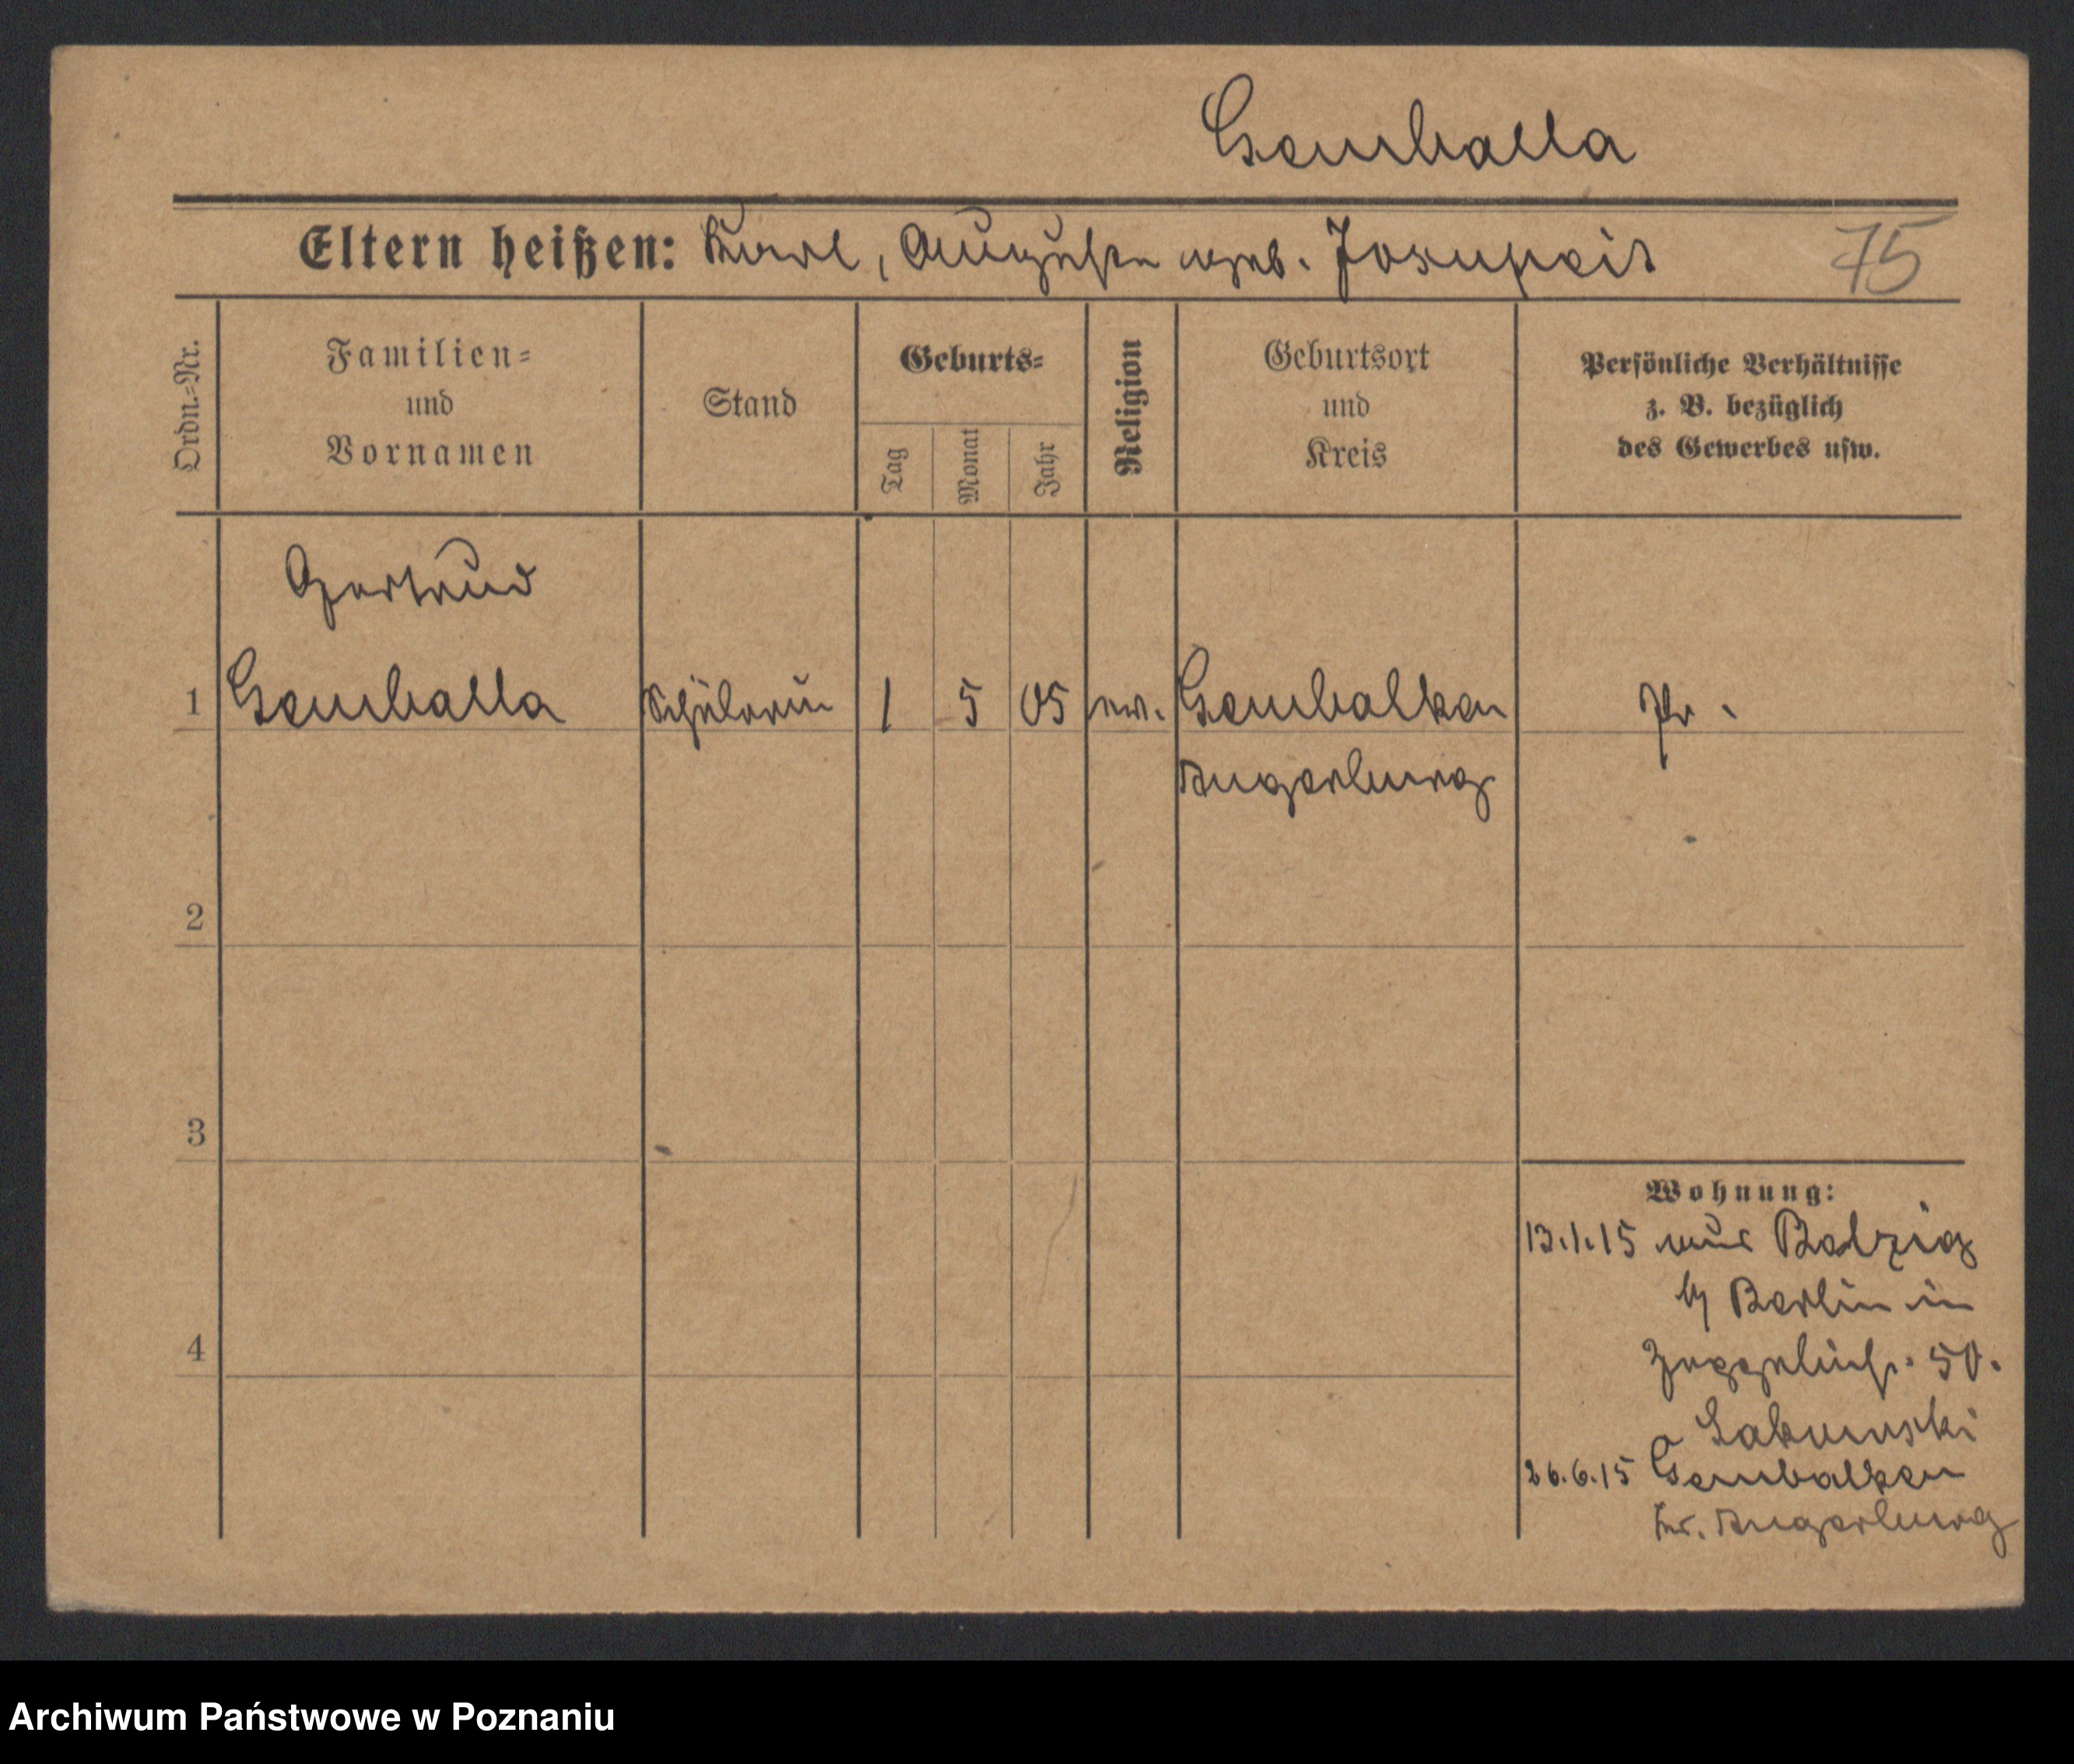 Gemballa
Eltern heißen: Karl, Auguste geb. Josupeit 75
Ordn.=Nr. Familien= und Vornamen Stand Geburts= Tag Monat Jahr Religion Geburtsort und Kreis Persönliche Verhältnisse z. B. bezüglich des Gewerbes usw.
Gertrud
1 Gemballa Schülerin 1 5 05 ev. Gembalken Pr.
Angerburg
2
3
Wohnung:
13.1.15 aus Belzig
b/ Berlin in
4
50.
26.6.15 Gembalken
Kr. Angerburg
Archiwum Państwowe w Poznaniu